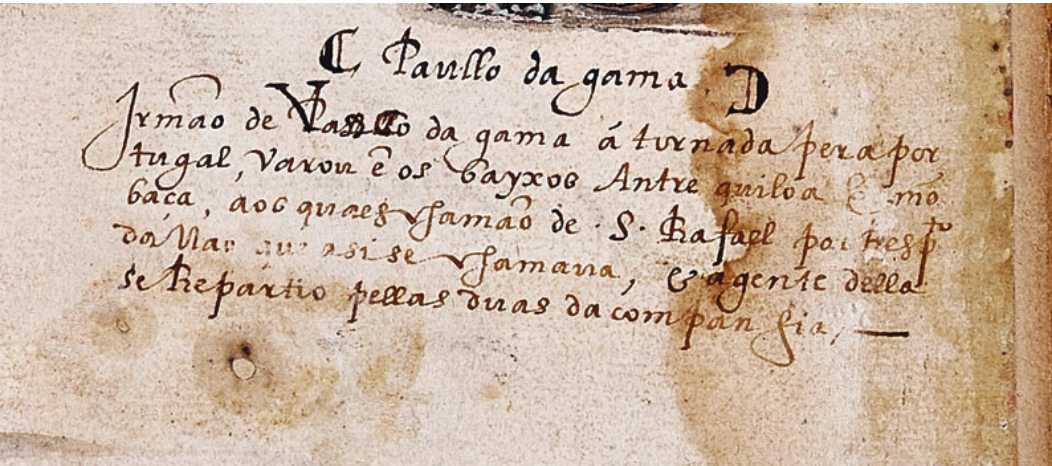 Paullo da gama
Irmão de Vasco da gama á tornada pera por
tugal, varou ẽ os bayxos Antre quiloa & mõ
baça, aos quaes chamão de · S · Rafael por respto
da Nao que asi se chamaua, & a gente della
se Repartio pellas duas da companhia,